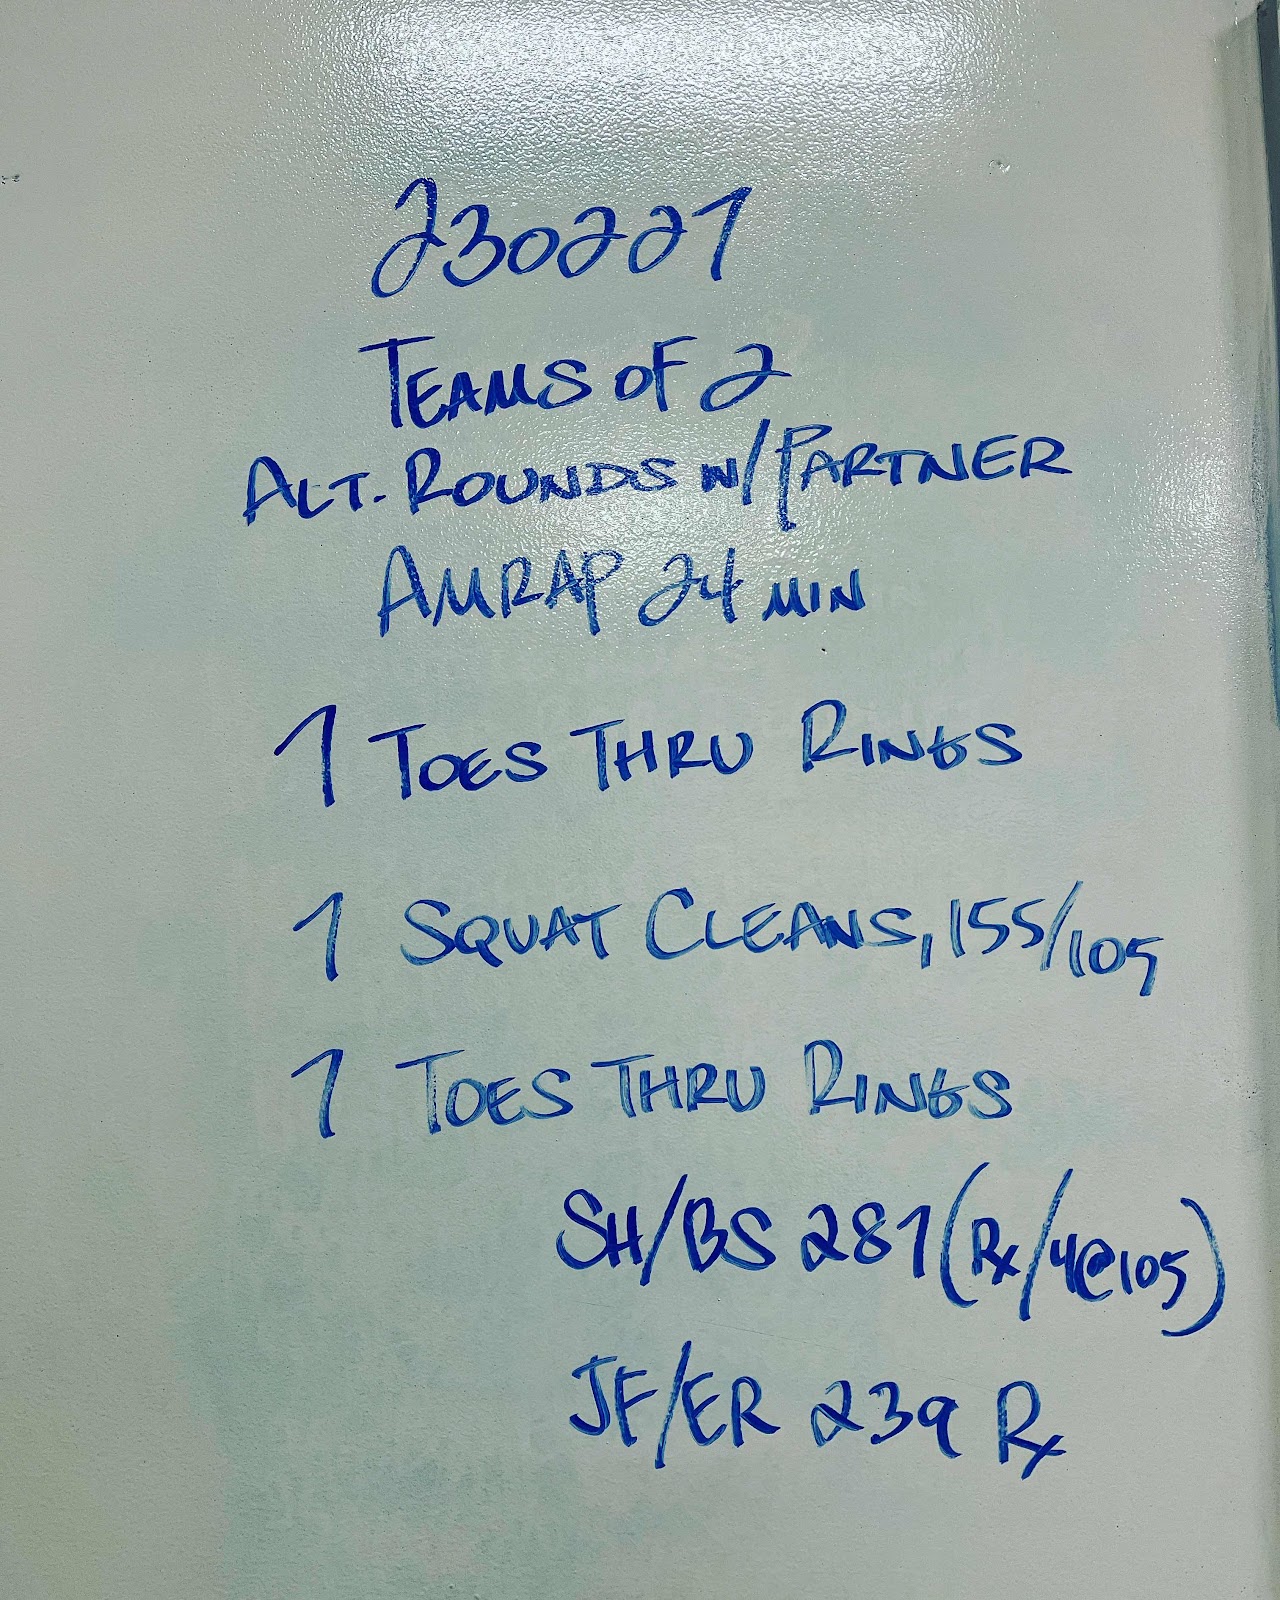 230227
TEAMS OF 2
ALT. ROUNDS W/ PARTNER
AMRAP 24 MIN
7 TOES THRU RINGS
7 SQUAT CLEANS, 155/105
7 TOES THRU RINGS
SH/BS 287 (Rx/4@105)
JF/ER 239 Rx